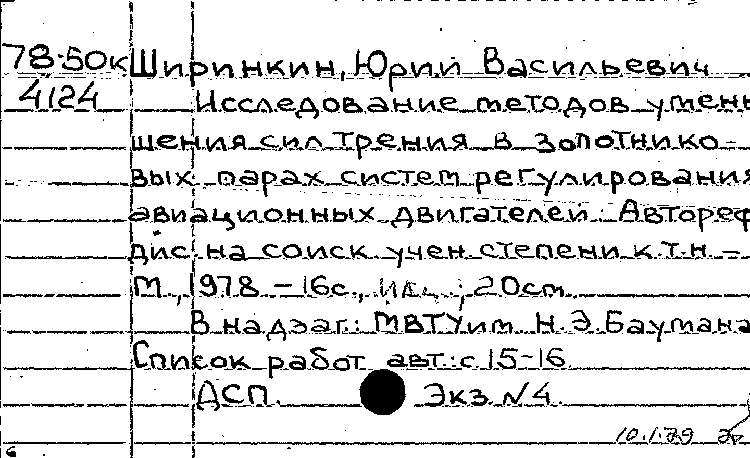 78-50к Ширинкин, Юрий Васильевич
4124 Исследование методов умень
шения сил трения в золотнико-
вых парах систем регулирования
авиационных двигателей: Автореф
дис. на соиск учен.степени к.т.н. –
М., 1978. – 16с., ил.; 20см.
В надзаг.: МВТУ им. Н.Э.Баумана
Список работ авт.: с 15-16.
ДСП. Экз №4.
10.1.79